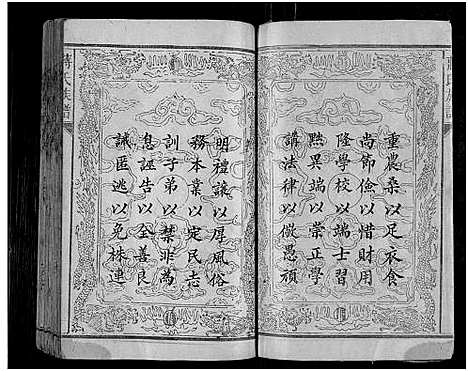 重農桑以足衣食
尚節儉以惜財用
隆學校以端士習
黜異端以崇正學
講法律以儆愚頑
明禮讓以厚風俗
務本業以定民志
訓子弟以禁非為
息誣告以全善良
誡匿逃以免株連
蔣氏族譜